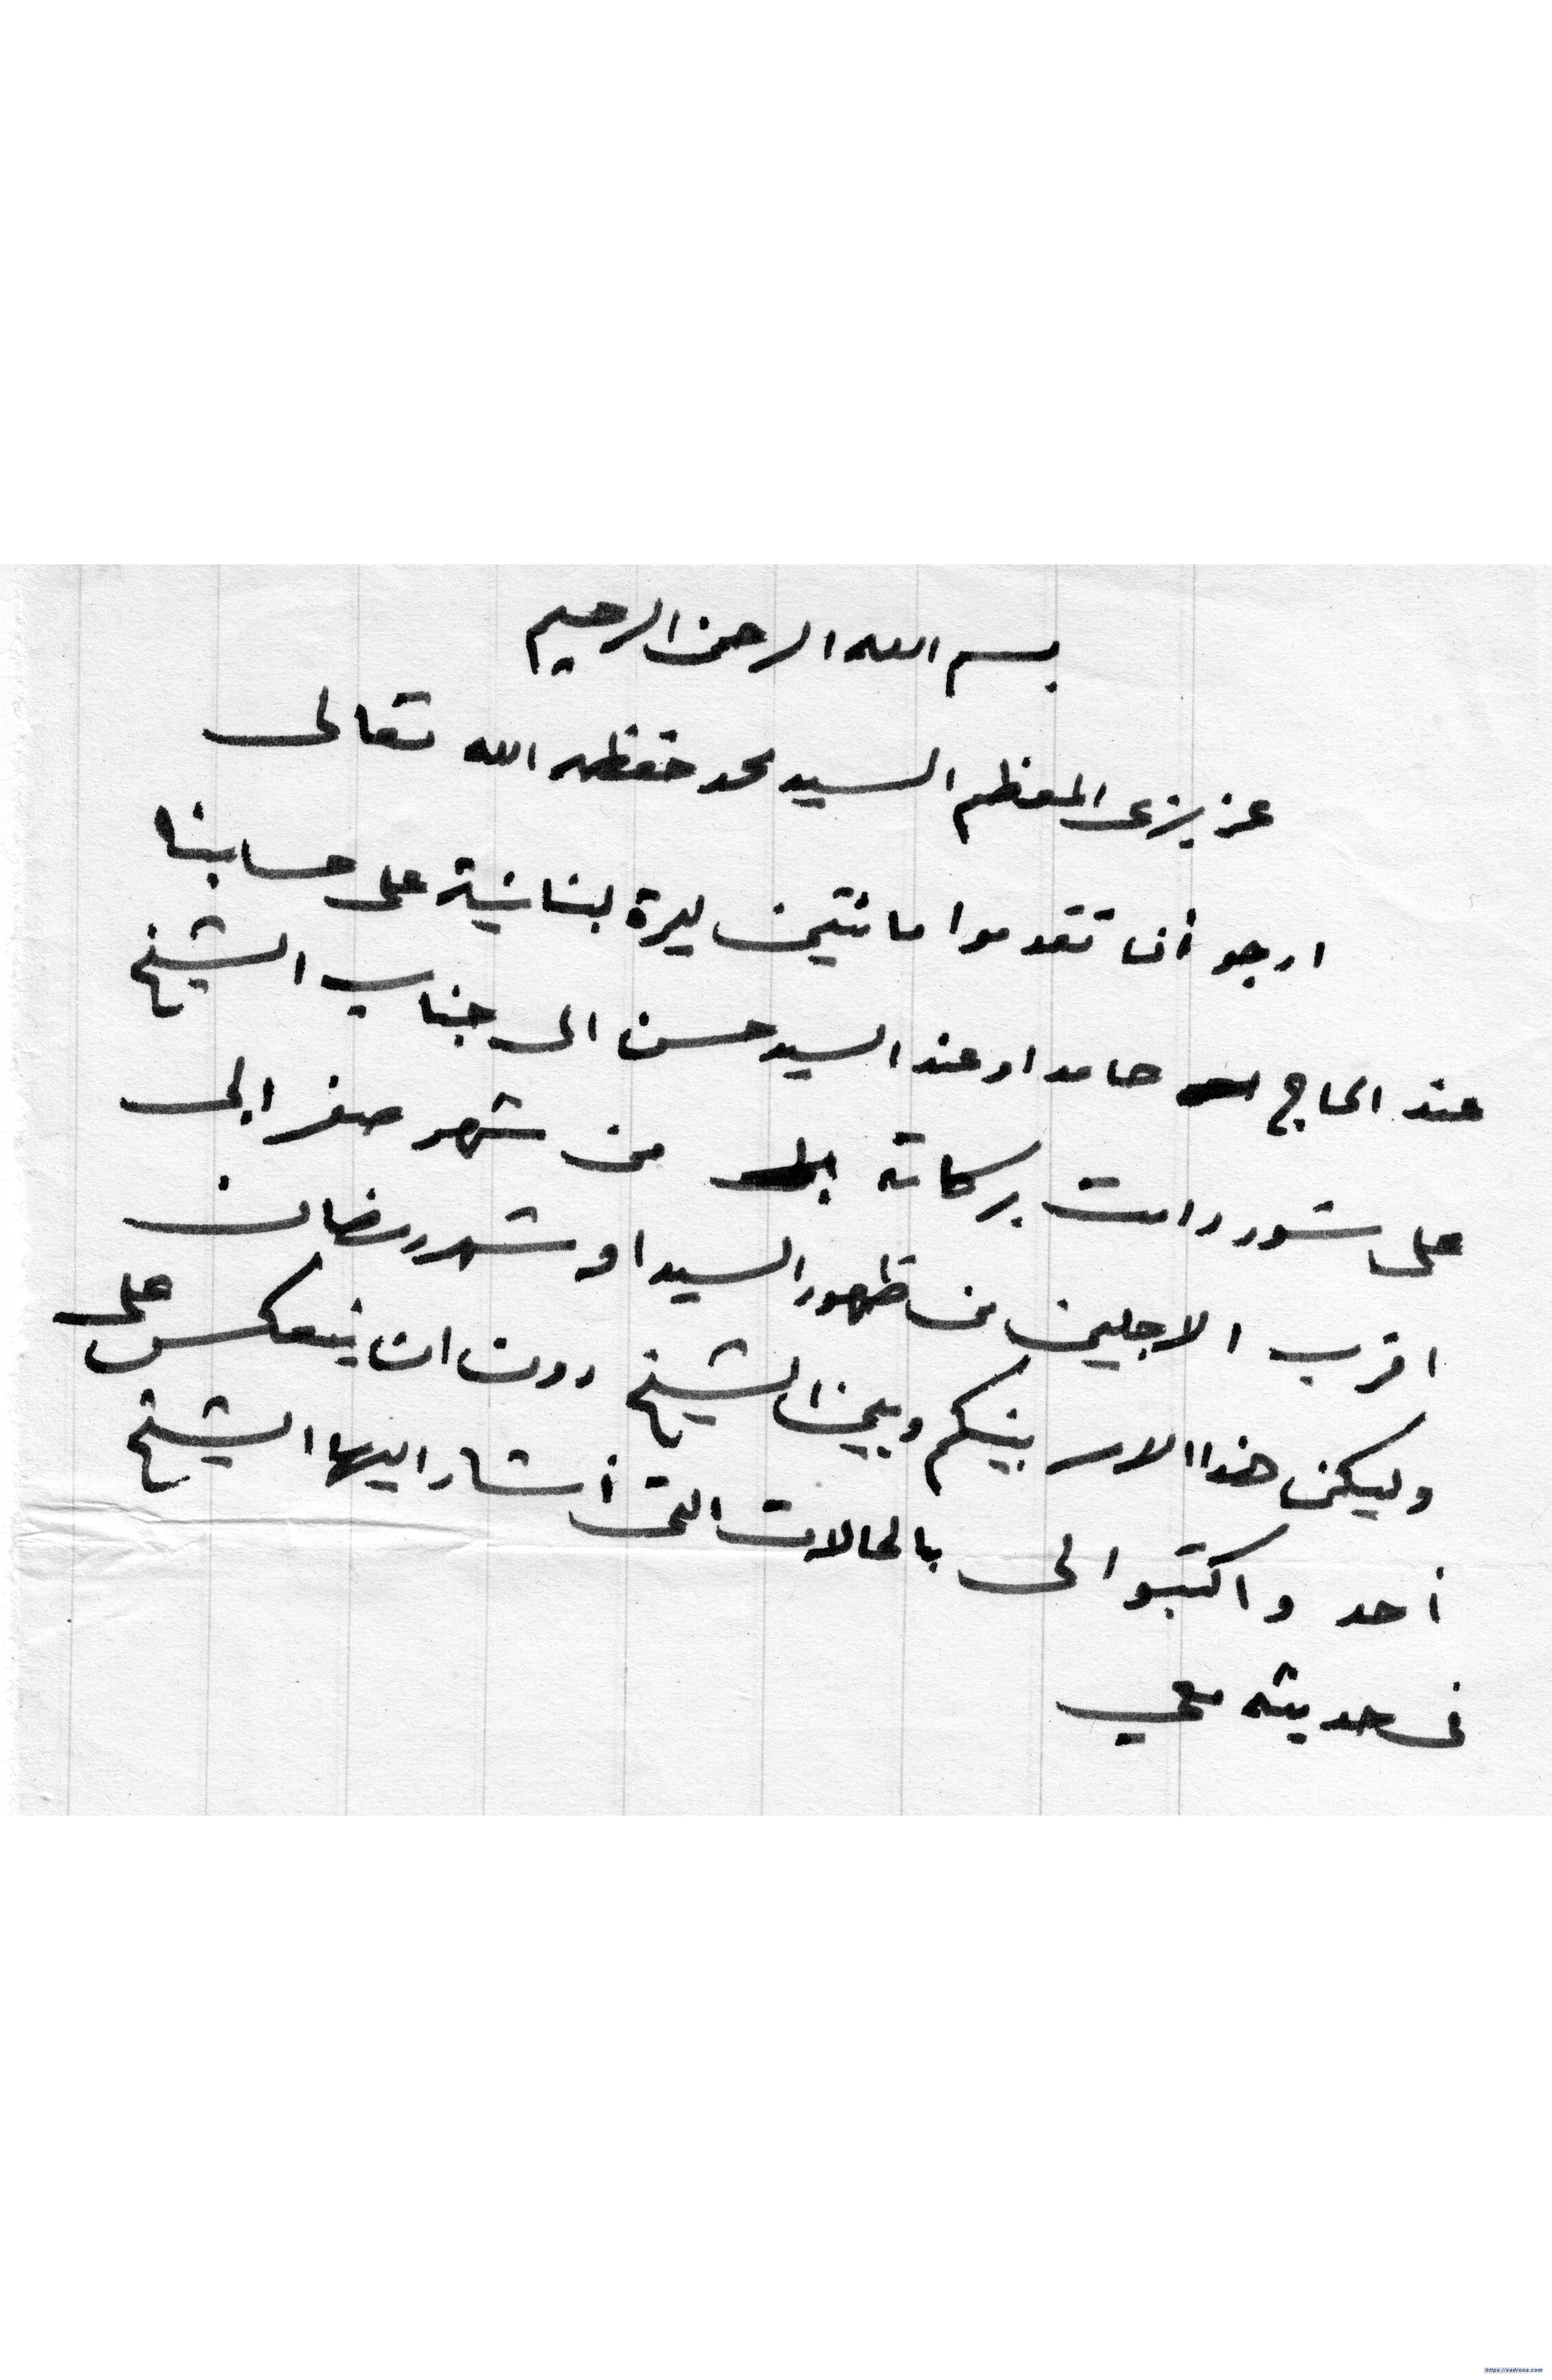 بسم الله الرحمن الرحيم
عزيزى المعظم السيد محمد حفظه الله تعالى
ارجو أن تقدموا مائتين ليرة لبنانية على حسابنا
عند الحاج حامد او عند السيد حسن الى جناب الشيخ
على شور دامت بركاته من شهر صفر الى
اقرب الاجلين من ظهور السيد او شهر رمضان
وليكن هذا الامر بينكم وبين الشيخ دون ان ينعكس على
أحد واكتبوا لى بالحالات التى أشار اليها الشيخ
فى حديثه معي
https://sadrona.com